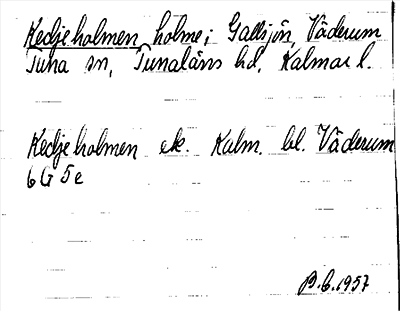 Kedjeholmen, holme i Gallsjön, Väderum
Tuna sn, Tunaläns hd, Kalmar l.
Kedjeholmen ek. Kalm. bl. Väderum
6G 5e
B.6.1957